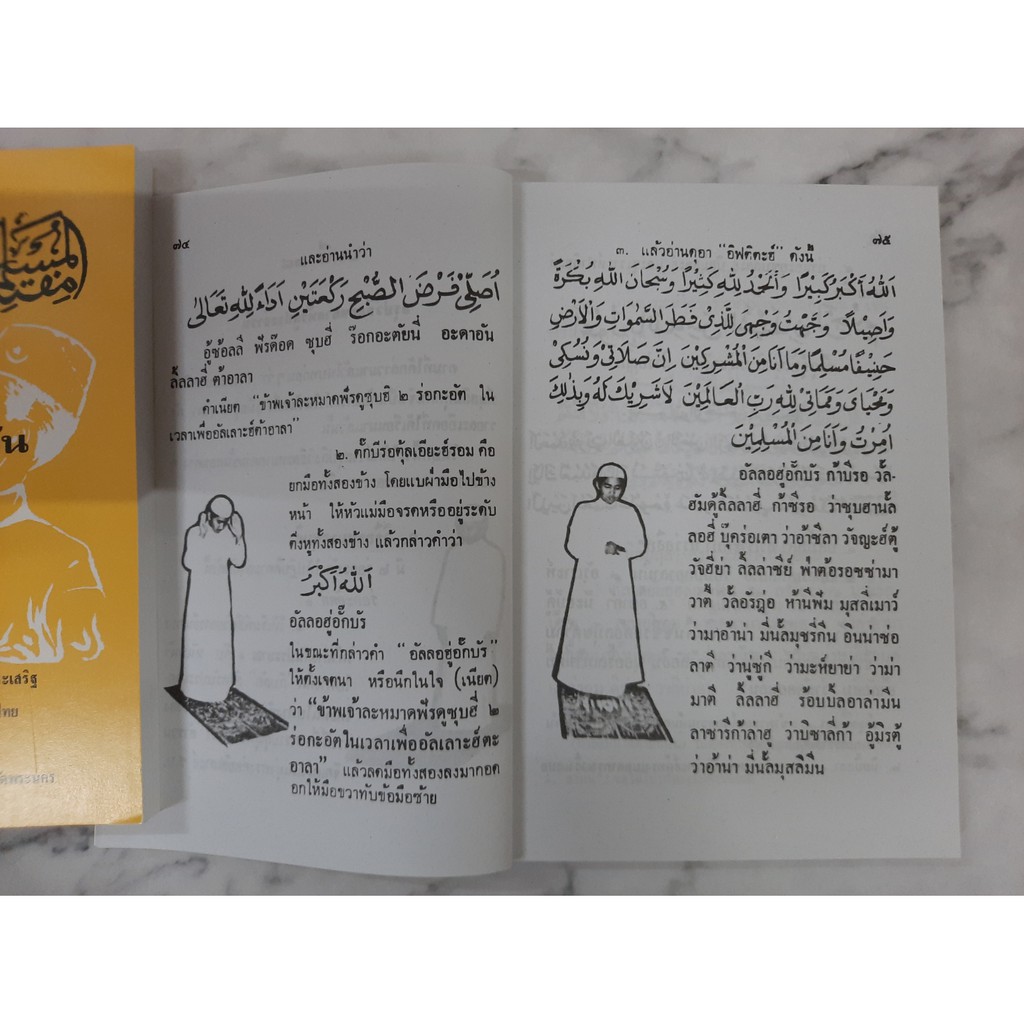 ن
ะเสริฐ
ไทย
ัดพระนคร
๗๔
และอ่านนำว่า
اُصَلِّىْ فَرْضَ الصُّبْحِ رَكْعَتَيْنِ اَدَاءً لِلّٰهِ تَعَالٰى
อู้ซ้อลลี่ ฟัรด้อด ซุบฮี่ ร๊อกอะตัยนี่ อะดาอัน
ลิ้ลลาฮี่ ต้าอาลา
คำเนียต "ข้าพเจ้าละหมาดฟัรดูซุบฮิ ๒ ร่อกะอัต ใน
เวลาเพื่ออัลเลาะฮ์ต้าอาลา"
๒. ตั๊กบีร่อตุ้ลเอียะฮ์รอม คือ
ยกมือทั้งสองข้าง โดยแบฝ่ามือไปข้าง
หน้า ให้หัวแม่มือจรดหรืออยู่ระดับ
ติ่งหูทั้งสองข้าง แล้วกล่าวคำว่า
اَللّٰهُ اَكْبَرُ
อัลลอฮู่อั๊กบัร
ในขณะที่กล่าวคำ "อัลลอยู่อั๊กบัร"
ให้ตั้งเจตนา หรือนึกในใจ (เนียต)
ว่า "ข้าพเจ้าละหมาดฟัรดูซุบฮี่ ๒
ร่อกะอัตในเวลาเพื่ออัลเลาะฮ์ตะ
อาลา" แล้วลดมือทั้งสองลงมากอด
อกให้มือขวาทับข้อมือซ้าย
๗๕
๓. แล้วอ่านดุอา "อิฟติตะฮ์" ดังนี้
اَللّٰهُ اَكْبَرُ كَبِيْرًا وَالْحَمْدُ لِلّٰهِ كَثِيْرًا وَسُبْحَانَ اللّٰهِ بُكْرَةً
وَاَصِيْلًا وَجَّهْتُ وَجْهِىَ لِلَّذِىْ فَطَرَ السَّمٰوَاتِ وَالْاَرْضِ
حَنِيْفًا مُسْلِمًا وَمَا اَنَا مِنَ الْمُشْرِكِيْنَ اِنَّ صَلَاتِىْ وَنُسُكِىْ
وَمَحْيَاىَ وَمَمَاتِىْ لِلّٰهِ رَبِّ الْعَالَمِيْنَ لَا شَرِيْكَ لَهُ وَبِذٰلِكَ
اُمِرْتُ وَاَنَا مِنَ الْمُسْلِمِيْنَ
อัลลอฮู่อั๊กบัร ก้าบีรอ วั้ล-
ฮัมดู้ลิลลาฮี่ ก้าซีรอ ว่าซุบฮานั้ล
ลอฮี่ บุ๊คร่อเตา ว่าอ้าซีลา วัจญะฮ์ตู้
วัจฮี่ย่า ลิ้ลลาซีย์ ฟ่าต้อรอซซ่ามา
วาตี้ วั้ลอัรฎ่อ ห้านีฟัม มุสลิ่เมาว์
ว่ามาอ้าน่า มี่นั้ลมุชรี่กีน อินน่าซ่อ
ลาตี่ ว่านู่ซู่กี่ ว่ามะห์ยาย่า ว่าม่า
มาตี่ ลิ้ลลาฮี่ ร้อบบิ้ลอาล่ามีน
ลาซ่ารี่ก้าล่าฮู่ ว่าบิซาลี่ก้า อู้มิรตู้
ว่าอ้าน่า มี่นั้ลมุสลิมีน